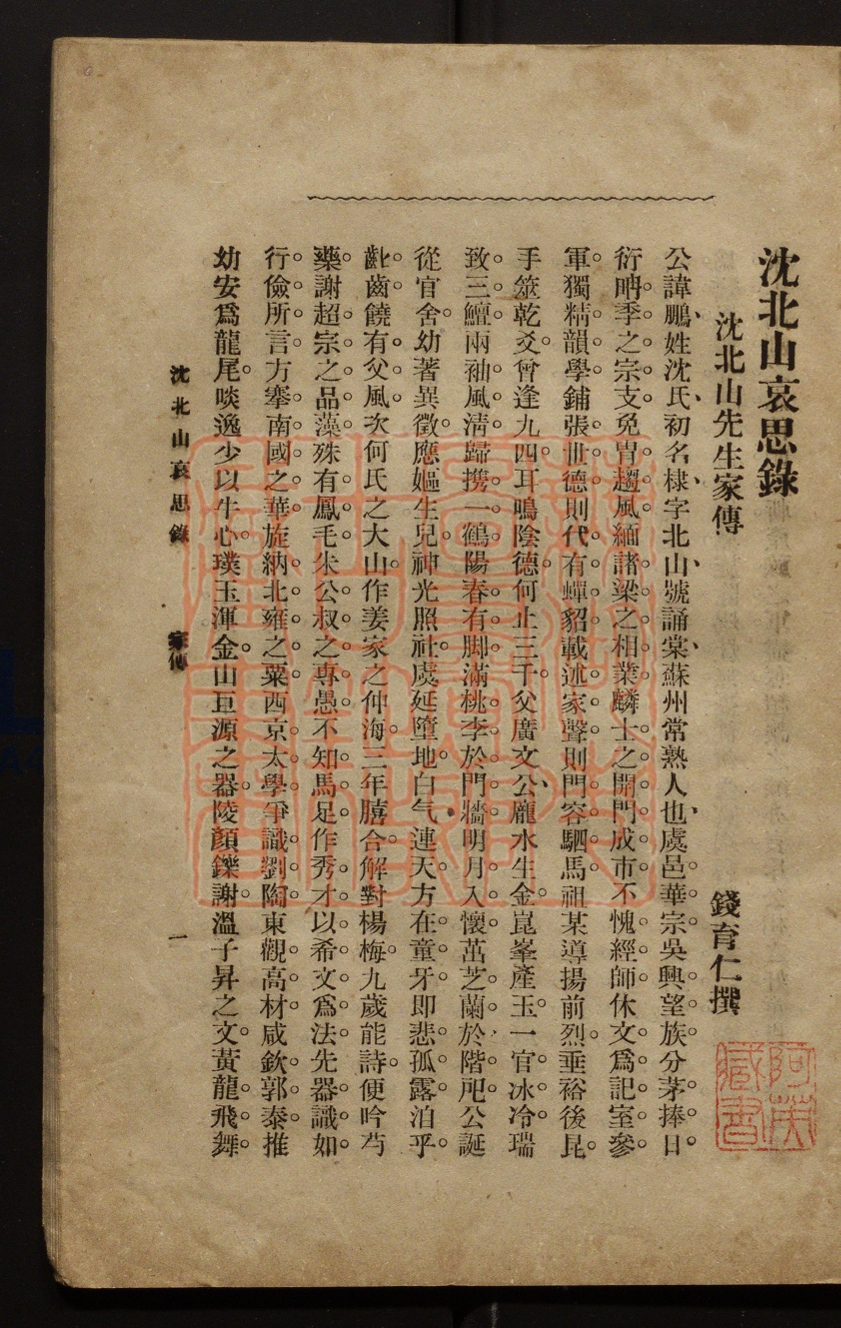 沈北山哀思錄
沈北山先生家傳
錢育仁撰
公諱鵬、姓沈氏、初名棣、字北山、號誦棠、蘇州常熟人也、虞邑華宗。吳興望族。分茅捧日。
衍聃季之宗支。免冑趨風。緬諸梁之相業。麟士之開門成市。不愧經師。休文爲記室參
軍。獨精韻學。鋪張世德。則代有蟬貂。載述家聲。則門容駟馬。祖某導揚前烈。垂裕後昆。
手筮乾爻。曾逢九四。耳鳴陰德。何止三千。父廣文公、龐水生金。崑峯產玉。一官冰冷。瑞
致三鱣。兩袖風清。歸携一鶴。陽春有脚。滿桃李於門牆。明月入懷。茁芝蘭於階戺。公誕
從官舍。幼著異徵。應嫗生兒。神光照社。虞延墮地。白气連天。方在童牙。即悲孤露。泊乎。
齔齒。饒有父風。次何氏之大山。作姜家之仲海。三年牆合。解對楊梅。九歲能詩。便吟芍
藥。謝超宗之品藻。殊有鳳毛。朱公叔之專愚。不知馬足。作秀才。以希文爲法。先器識。如
行儉所言。方搴南國之華。旋納北雍之粟。西京太學。爭識劉陶。東觀高材。咸欽郭泰。推
幼安爲龍尾。啖逸少以牛心。璞玉渾金。山巨源之器。陵顏鑠謝。溫子昇之文。黃龍飛舞。
沈北山哀思錄
家傳
一